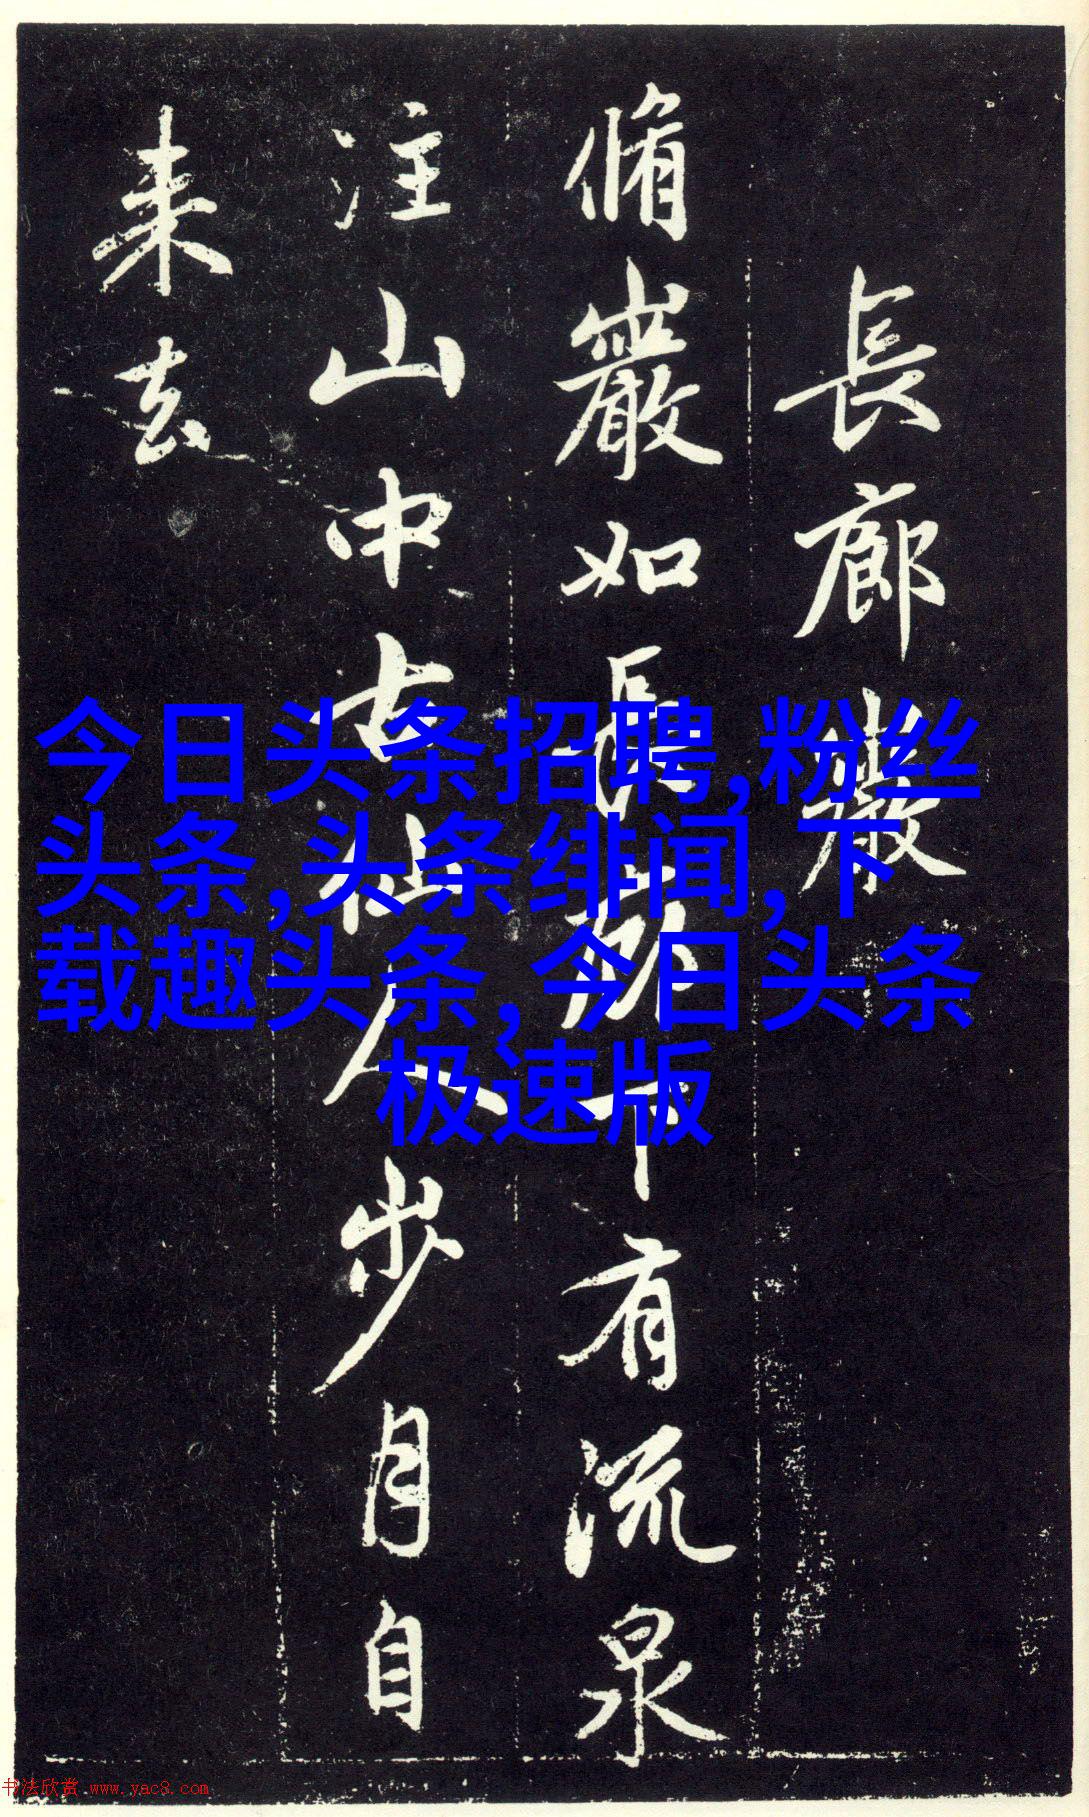 長廊巖
脩巖如長廊下有流泉
注山中古仙人步月自
来去
今日头条招聘,粉丝
头条,头条绯闻, 下
载趣头条, 今日头条
极速版
书法欣赏 www.yac8.com